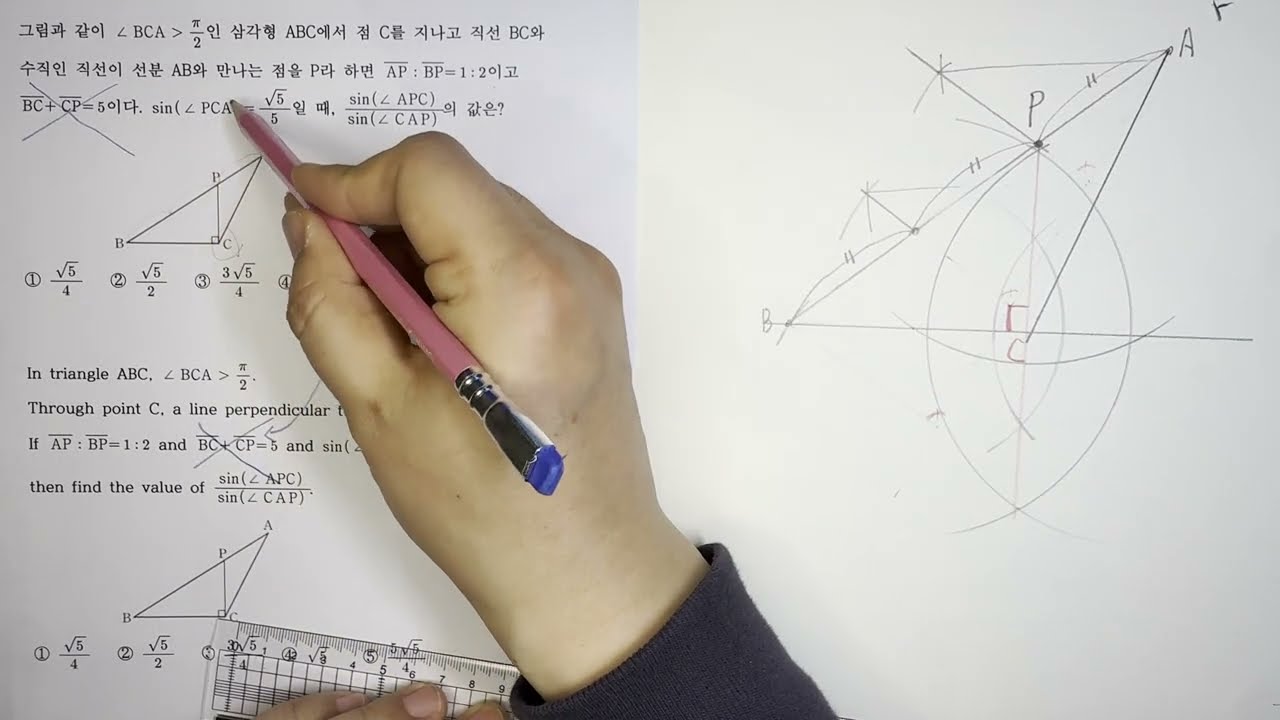 그림과 같이 ∠BCA > π/2인 삼각형 ABC에서 점 C를 지나고 직선 BC와
수직인 직선이 선분 AB와 만나는 점을 P라 하면 AP : BP = 1 : 2이고
BC + CP = 5이다. sin(∠PCA) = √5/5일 때, sin(∠APC)/sin(∠CAP)의 값은?
P
B
C
① √5/4 ② √5/2 ③ 3√5/4 ④
In triangle ABC, ∠BCA > π/2.
Through point C, a line perpendicular
If AP : BP = 1 : 2 and BC + CP = 5 and sin(∠
then find the value of sin(∠APC)/sin(∠CAP).
A
P
B
C
① √5/4 ② √5/2 ③ 3√5/4 ④ √5 ⑤ 5√5/4
A
P
B
C